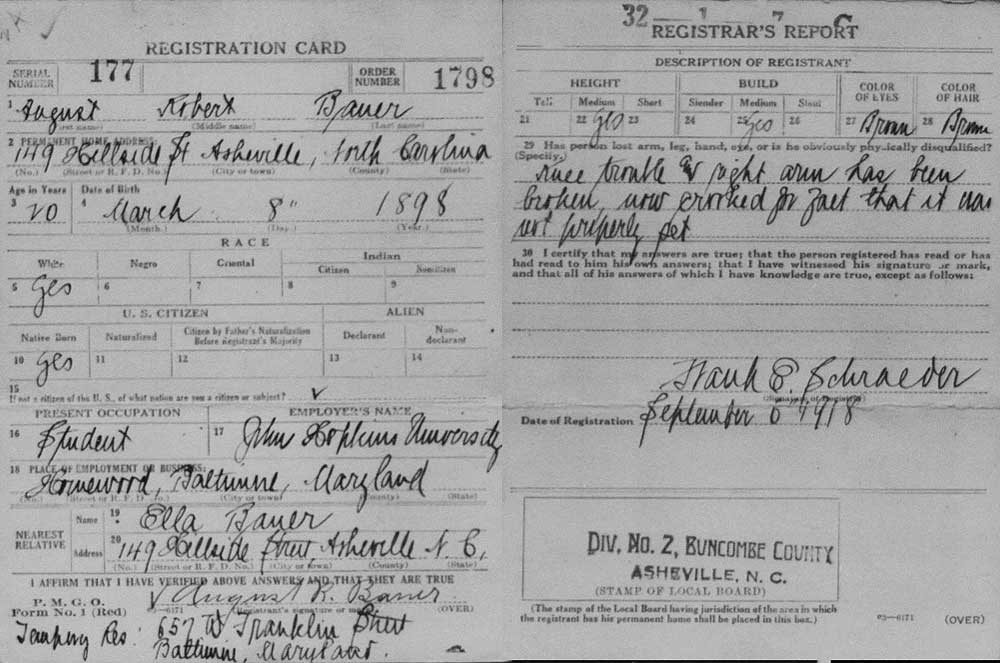 REGISTRATION CARD
SERIAL NUMBER 177
ORDER NUMBER 1798
1 August Robert Bauer
(First name) (Middle name) (Last name)
2 PERMANENT HOME ADDRESS:
149 Hillside St Asheville, North Carolina
(No.) (Street or R. F. D. No.) (City or town) (County) (State)
Age in Years Date of Birth
3 20 4 March 8" 1898
(Month.) (Day.) (Year.)
RACE
White Negro Oriental Indian
Citizen Noncitizen
5 Yes 6 7 8 9
U. S. CITIZEN ALIEN
Native Born Naturalized Citizen by Father's Naturalization Before Registrant's Majority Declarant Non-declarant
10 Yes 11 12 13 14
15
If not a citizen of the U. S., of what nation are you a citizen or subject?
PRESENT OCCUPATION EMPLOYER'S NAME
16 Student 17 John Hopkins University
18 PLACE OF EMPLOYMENT OR BUSINESS:
Homewood, Baltimore, Maryland
(No.) (Street or R. F. D. No.) (City or town) (County) (State)
NEAREST RELATIVE
Name 19 Ella Bauer
Address 20 149 Hillside Street, Asheville N. C.
(No.) (Street or R. F. D. No.) (City or town) (County) (State)
I AFFIRM THAT I HAVE VERIFIED ABOVE ANSWERS AND THAT THEY ARE TRUE
P. M. G. O.
Form No. 1 (Red) August R. Bauer
(Registrant's signature or mark) (OVER)
Temporary Res: 657 W Franklin Street
Baltimore, Maryland.
32 1 7 C
REGISTRAR'S REPORT
DESCRIPTION OF REGISTRANT
HEIGHT BUILD COLOR OF EYES COLOR OF HAIR
Tall Medium Short Slender Medium Stout
21 22 Yes 23 24 25 Yes 26 27 Brown 28 Brown
29 Has person lost arm, leg, hand, eye, or is he obviously physically disqualified?
(Specify.)
Knee trouble & right arm has been
broken, now crooked for fact that it was
not properly set
30 I certify that my answers are true; that the person registered has read or has
had read to him his own answers; that I have witnessed his signature or mark,
and that all of his answers of which I have knowledge are true, except as follows:
Frank E. Schraeder
(Signature of Registrar)
Date of Registration September 6 1918
DIV. NO. 2, BUNCOMBE COUNTY
ASHEVILLE, N. C.
(STAMP OF LOCAL BOARD)
(The stamp of the Local Board having jurisdiction of the area in which
the registrant has his permanent home shall be placed in this box.)
03—6171 (OVER)